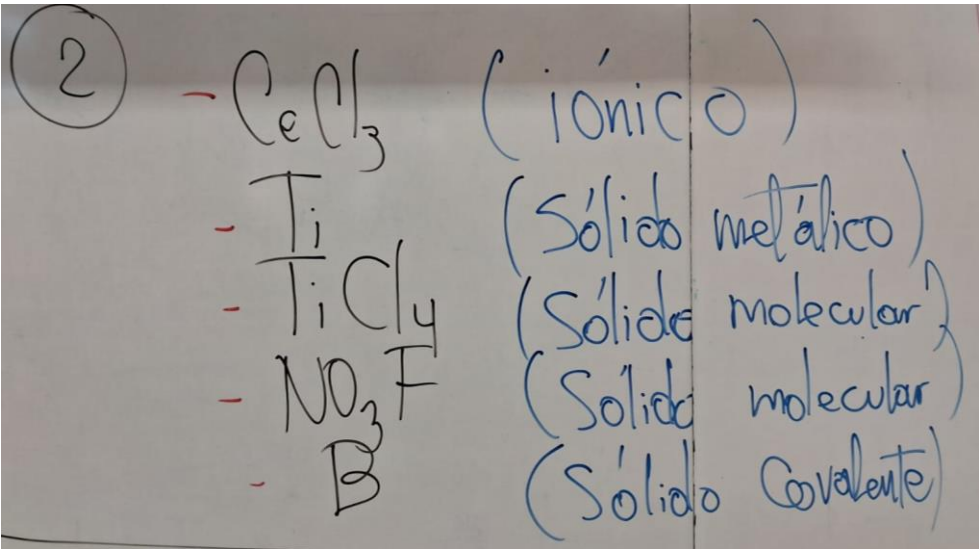 2 - CeCl3 (iónico)
- Ti (Sólido metálico)
- TiCl4 (Sólido molecular)
- NO3F (Sólido molecular)
- B (Sólido Covalente)